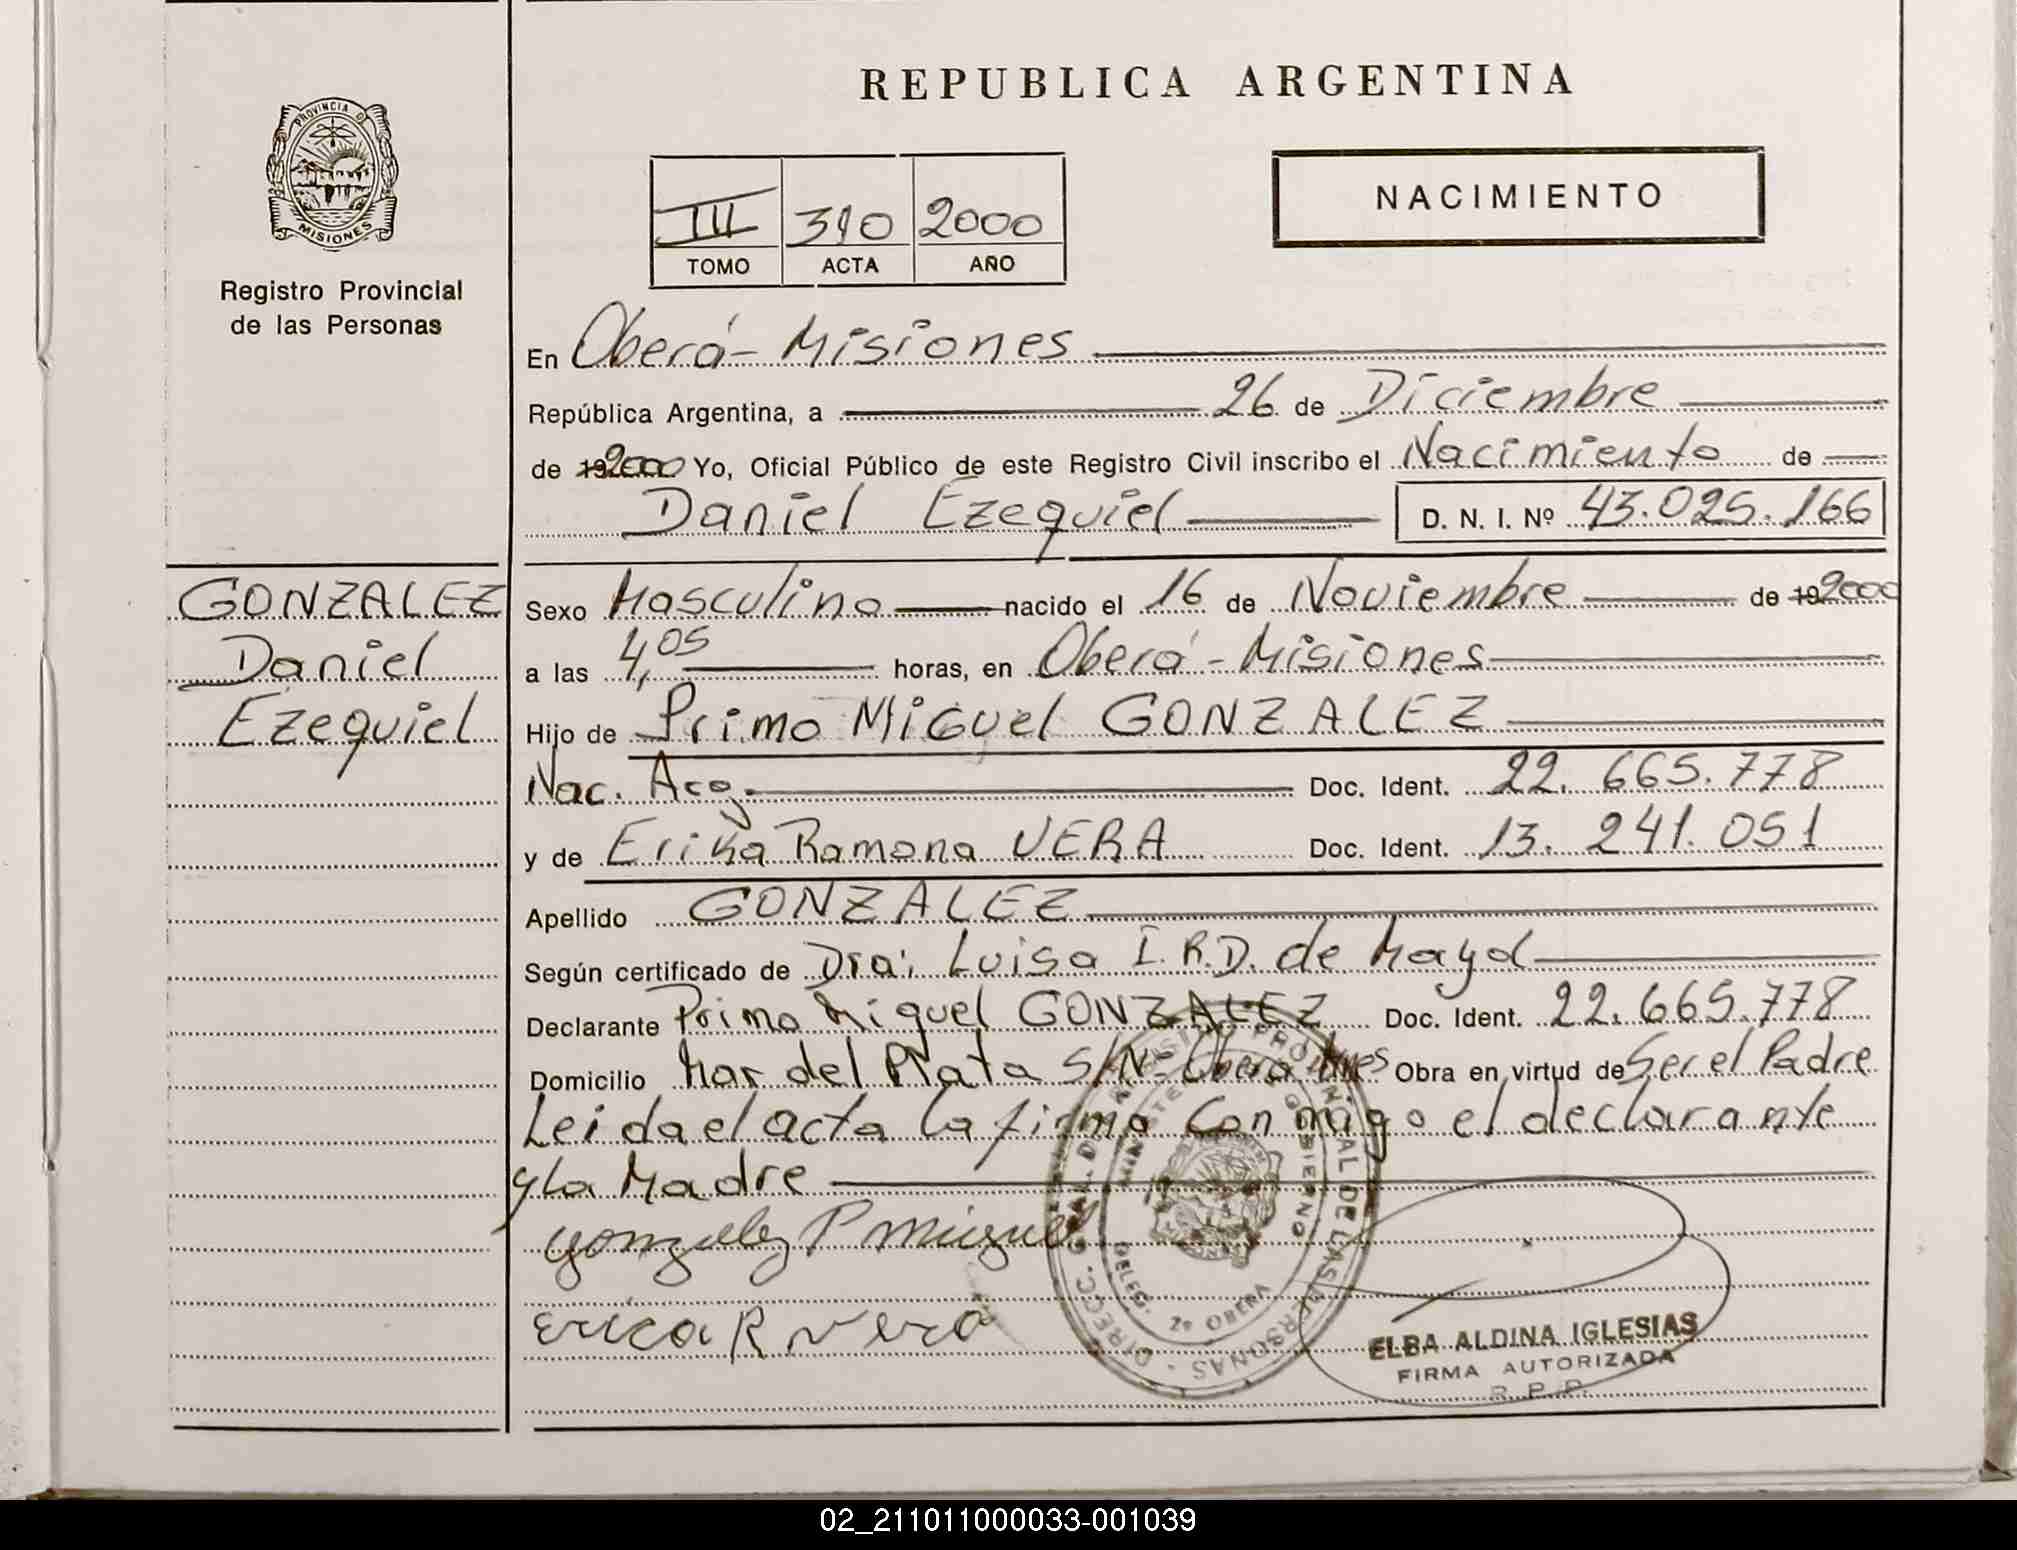 REPUBLICA ARGENTINA
PROVINCIA DE
MISIONES
Registro Provincial
de las Personas
NACIMIENTO
III 390 2000
TOMO ACTA AÑO
En Oberá - Misiones
República Argentina, a 26 de Diciembre
de 19 2000 Yo, Oficial Público de este Registro Civil inscribo el Nacimiento de
Daniel Ezequiel D. N. I. Nº 43.025.166
GONZALEZ
Daniel
Ezequiel
Sexo Masculino nacido el 16 de Noviembre de 19 2000
a las 4,05 horas, en Oberá - Misiones
Hijo de Primo Miguel GONZALEZ
Nac. Arg. Doc. Ident. 22.665.778
y de Erika Ramona VERA Doc. Ident. 13.241.051
Apellido GONZALEZ
Según certificado de Dra; Luisa I.R.D. de Mayol
Declarante Primo Miguel GONZALEZ Doc. Ident. 22.665.778
Domicilio Mar del Plata S/Nº Oberá Mnes Obra en virtud de Ser el Padre
Leida el acta La firma Conmigo el declarante
y La Madre
Gonzalez P Miguel
Erica R Vera
DIRECC. GRAL. DEL REGISTRO PROVINCIAL DE LAS PERSONAS
MINISTERIO GOBIERNO
DELEG. 2º OBERA
ELBA ALDINA IGLESIAS
FIRMA AUTORIZADA
R. P. P.
02_211011000033-001039